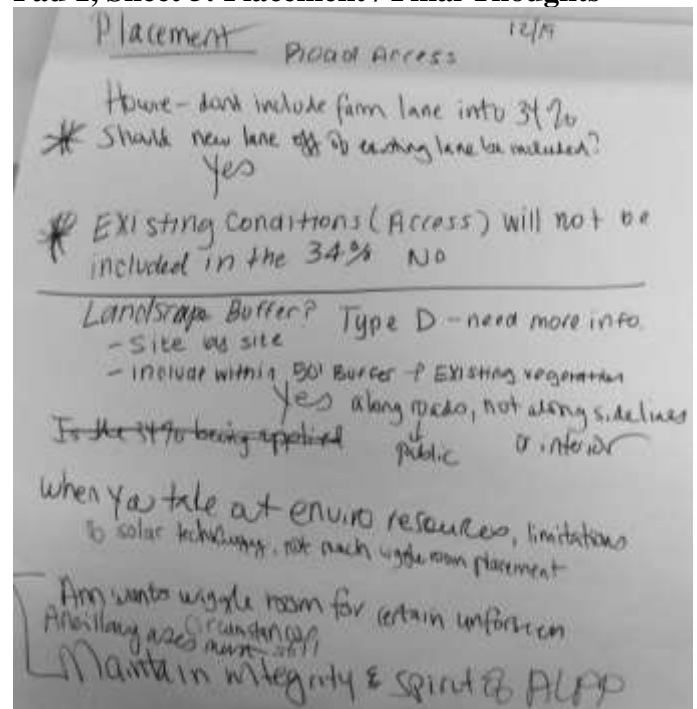 Pad 2, Sheet 3: Placement / Final Thoughts
Placement 12/19
Road Access
Howie - dont include farm lane into 34%
* Should new lane off of existing lane be included?
Yes
* EXisting Conditions (Access) will not be
included in the 34% NO
Landscape Buffer? Type D - need more info.
- Site by site
- include within 50' Buffer + EXisting vegetation
Yes along roads, not along sidelines
Is the 34% being applied public or interior
When you take out enviro resources, limitations
to solar technology, not much wiggle room placement
Amy wants wiggle room for certain unforseen
Ancillary uses circumstances
must still
Maintain integrity & spirit of ALPP